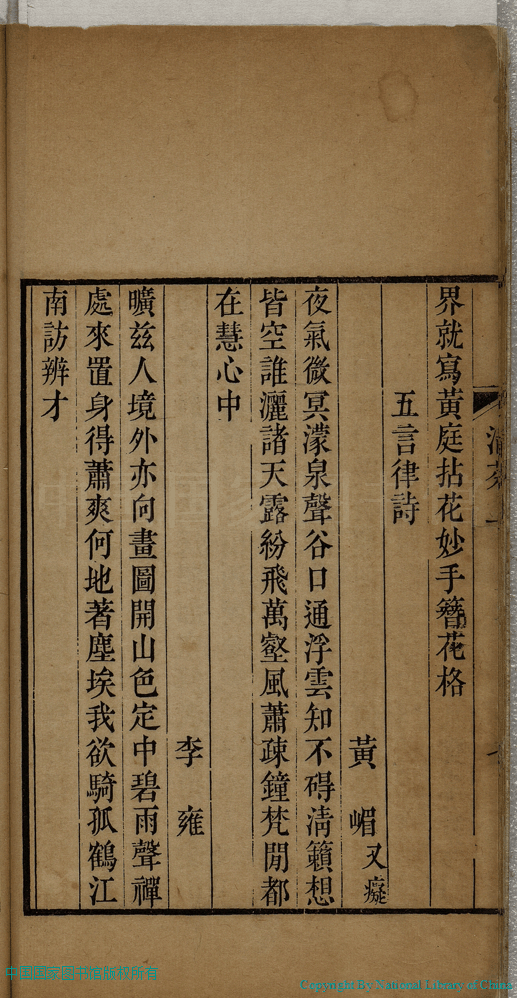 界就寫黃庭拈花妙手簪花格
五言律詩
黃嵋又癡
夜氣微冥濛泉聲谷口通浮雲知不碍清籟想
皆空誰灑諸天露紛飛萬壑風蕭疎鐘梵閒都
在慧心中
李雍
曠玆人境外亦向畫圖開山色定中碧雨聲禪
處來置身得蕭爽何地著塵埃我欲騎孤鶴江
南訪辨才
中国国家图书馆版权所有
Copyright By National Library of China